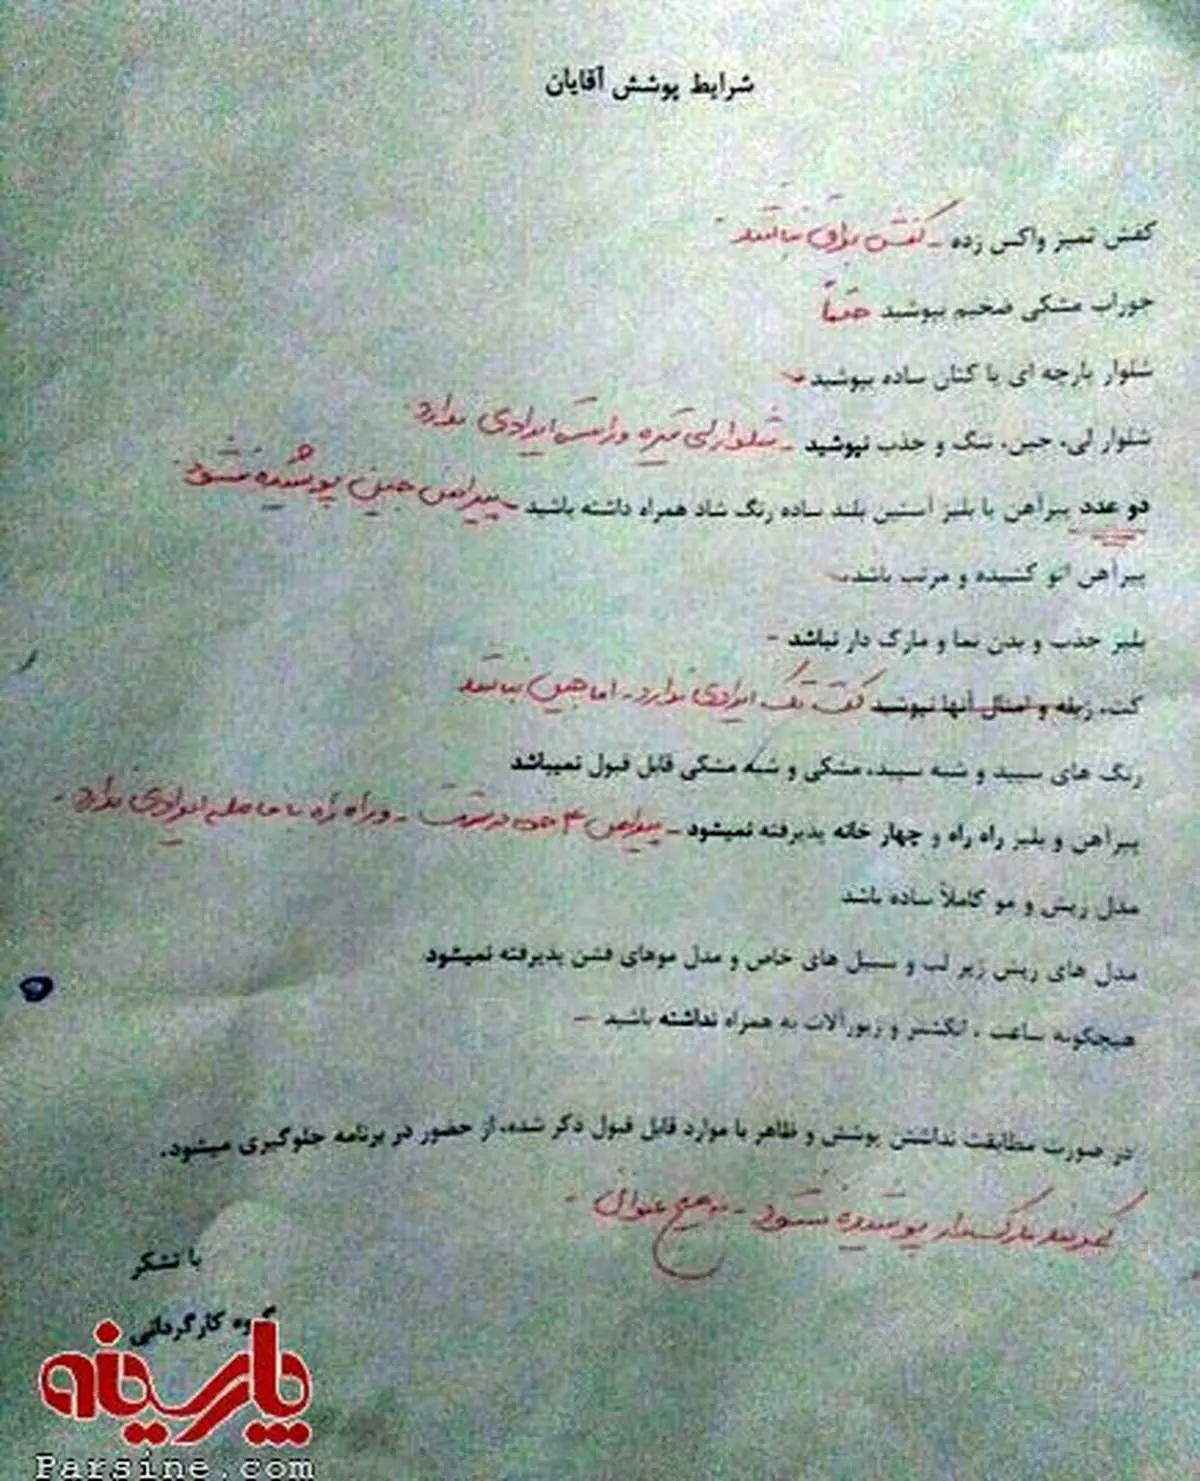 شرایط پوشش آقایان
کفش تمیز واکس زده - کفش براق نباشد
جوراب مشکی ضخیم بپوشید حتماً
شلوار پارچه ای یا کتان ساده بپوشید
شلوار لی، جین، تنگ و جذب نپوشید - شلوار لی تیره و راسته ایرادی ندارد
دو عدد پیراهن یا بلیز آستین بلند ساده رنگ شاد همراه داشته باشید - پیراهن جین پوشیده نشود
پیراهن اتو کشیده و مرتب باشد
بلیز جذب و بدن نما و مارک دار نباشد -
کت، و امثال آنها نپوشید کت تک ایرادی ندارد - اما جین نباشد
رنگ های سپید و شبه سپید، مشکی و شبه مشکی قابل قبول نمیباشد
پیراهن و بلیز راه راه و چهار خانه پذیرفته نمیشود - پیراهن ۴ خونه درشت - و راه راه با فاصله ایرادی ندارد -
مدل ریش و مو کاملاً ساده باشد
مدل های ریش زیر لب و سبیل های خاص و مدل موهای فشن پذیرفته نمیشود
هیچگونه ساعت ، انگشتر و زیورآلات به همراه نداشته باشید -
در صورت مطابقت نداشتن پوشش و ظاهر با موارد قابل قبول ذکر شده، از حضور در برنامه جلوگیری میشود.
مارکدار پوشیده نشود - به هیچ عنوان -
با تشکر
گروه کارگردانی
پارسینه
Parsine.com